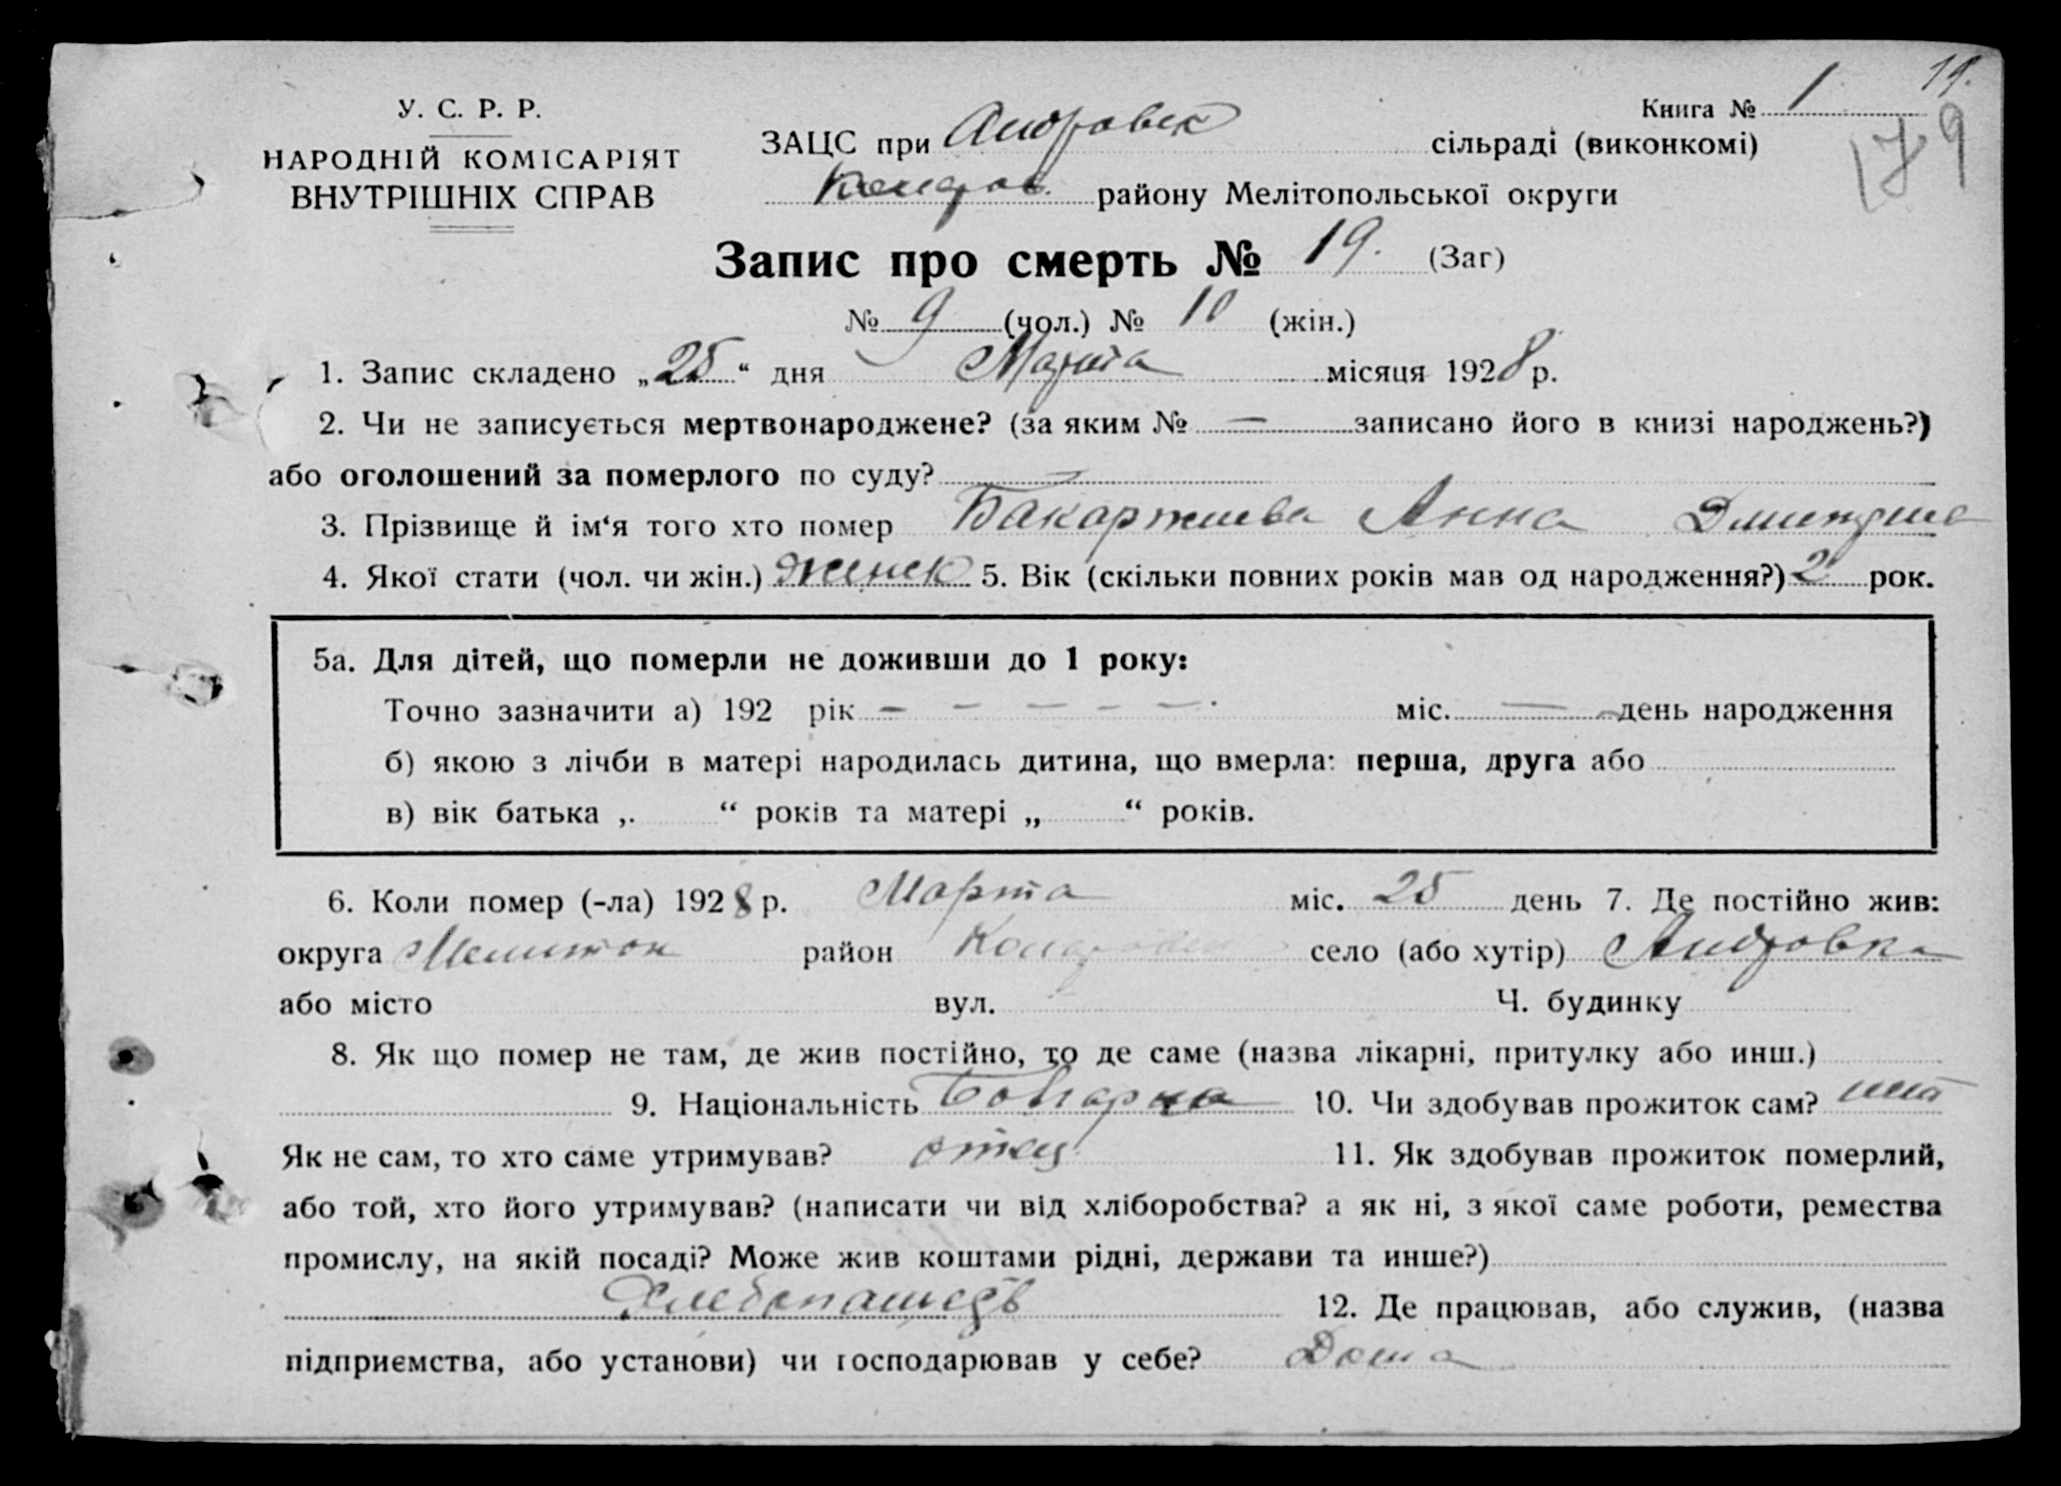 19.
У. С. Р. Р.
Книга № 1
179
НАРОДНІЙ КОМІСАРІЯТ
ВНУТРІШНІХ СПРАВ
ЗАЦС при Андровск сільраді (виконкомі)
району Мелітопольської округи
Запис про смерть № 19. (Заг)
№ 9 (чол.) № 10 (жін.)
1. Запис складено „25“ дня Марта місяця 1928 р.
2. Чи не записується мертвонароджене? (за яким № — записано його в книзі народжень?)
або оголошений за померлого по суду?
3. Прізвище й ім‘я того хто помер Бакаржиева Анна
4. Якої стати (чол. чи жін.) женск 5. Вік (скільки повних років мав од народження?) 2 рок.
5а. Для дітей, що померли не доживши до 1 року:
Точно зазначити а) 192 рік - - - - - міс. — день народження
б) якою з лічби в матері народилась дитина, що вмерла: перша, друга або
в) вік батька „ “ років та матері „ “ років.
6. Коли помер (-ла) 1928 р. Марта міс. 25 день 7. Де постійно жив:
округа Мелитоп район село (або хутір) Андровка
або місто вул. Ч. будинку
8. Як що помер не там, де жив постійно, то де саме (назва лікарні, притулку або инш.)
9. Національність Болгарка 10. Чи здобував прожиток сам? нет
Як не сам, то хто саме утримував? отец 11. Як здобував прожиток померлий,
або той, хто його утримував? (написати чи від хліборобства? а як ні, з якої саме роботи, ремества
промислу, на якій посаді? Може жив коштами рідні, держави та инше?)
Хлебопашедв 12. Де працював, або служив, (назва
підприємства, або установи) чи господарював у себе? Дома